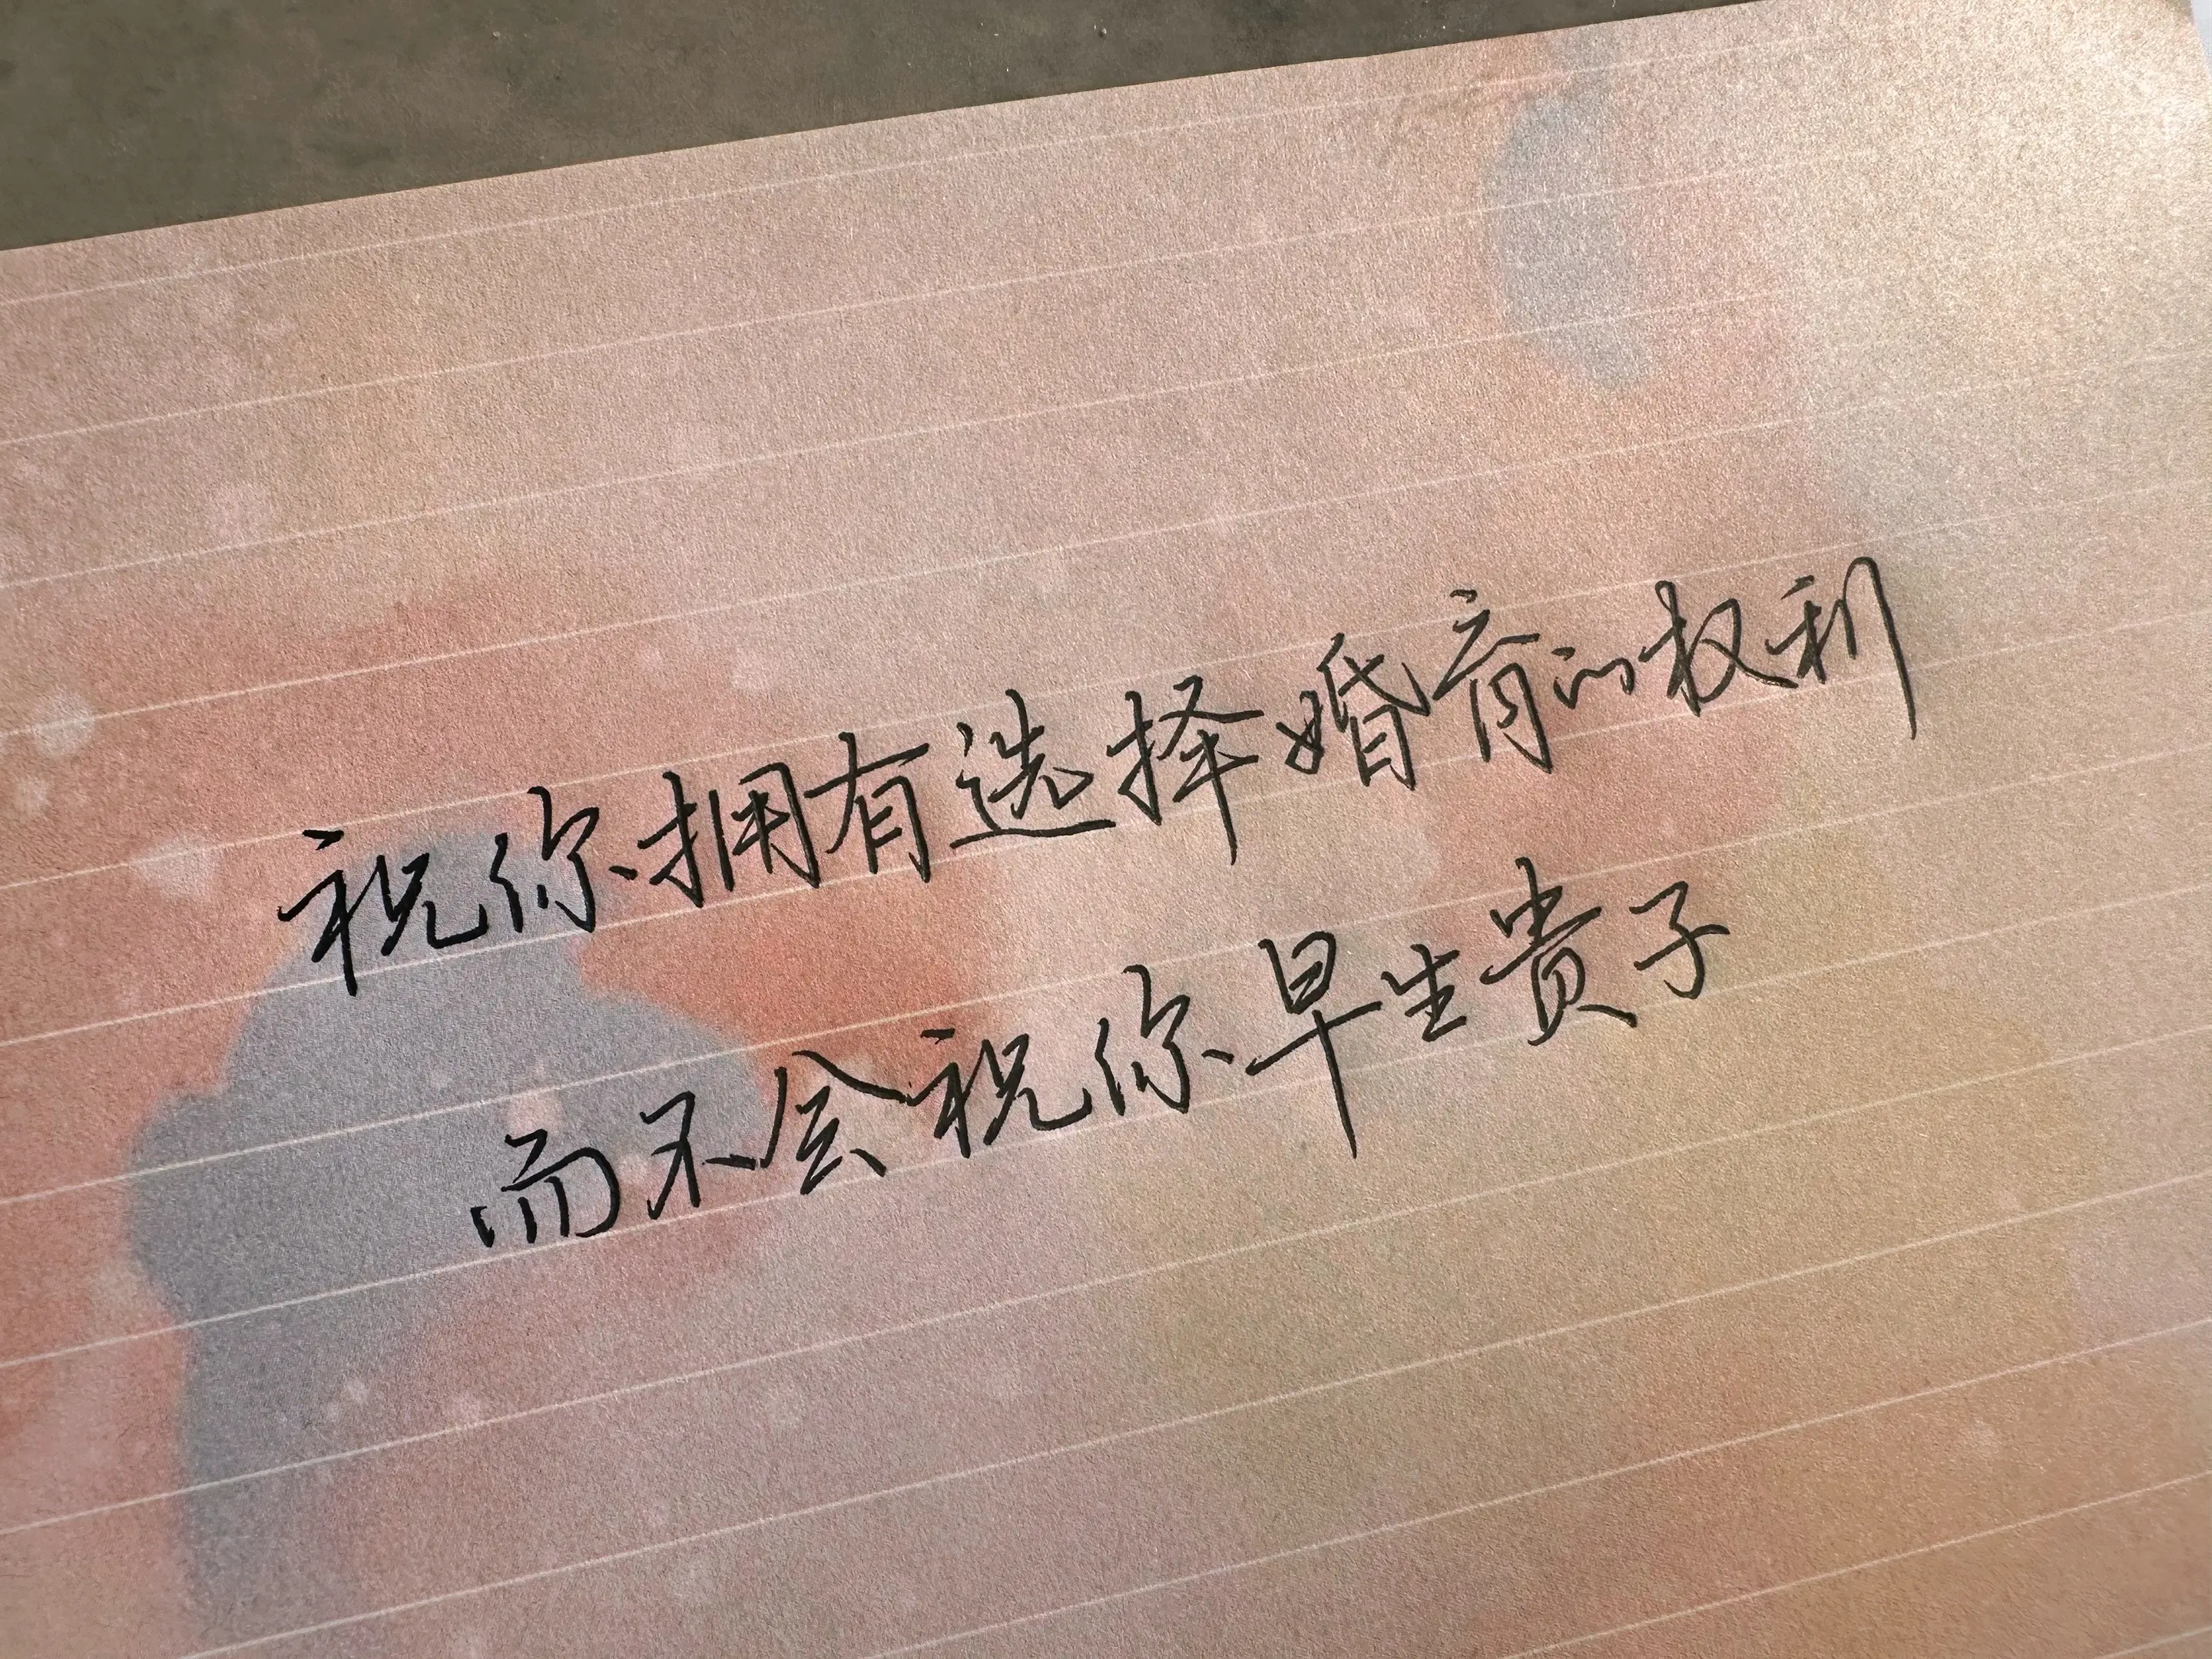 祝你拥有选择婚育的权利
而不会祝你早生贵子